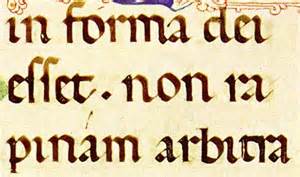 in forma dei
esset. non ra
pinam arbitra